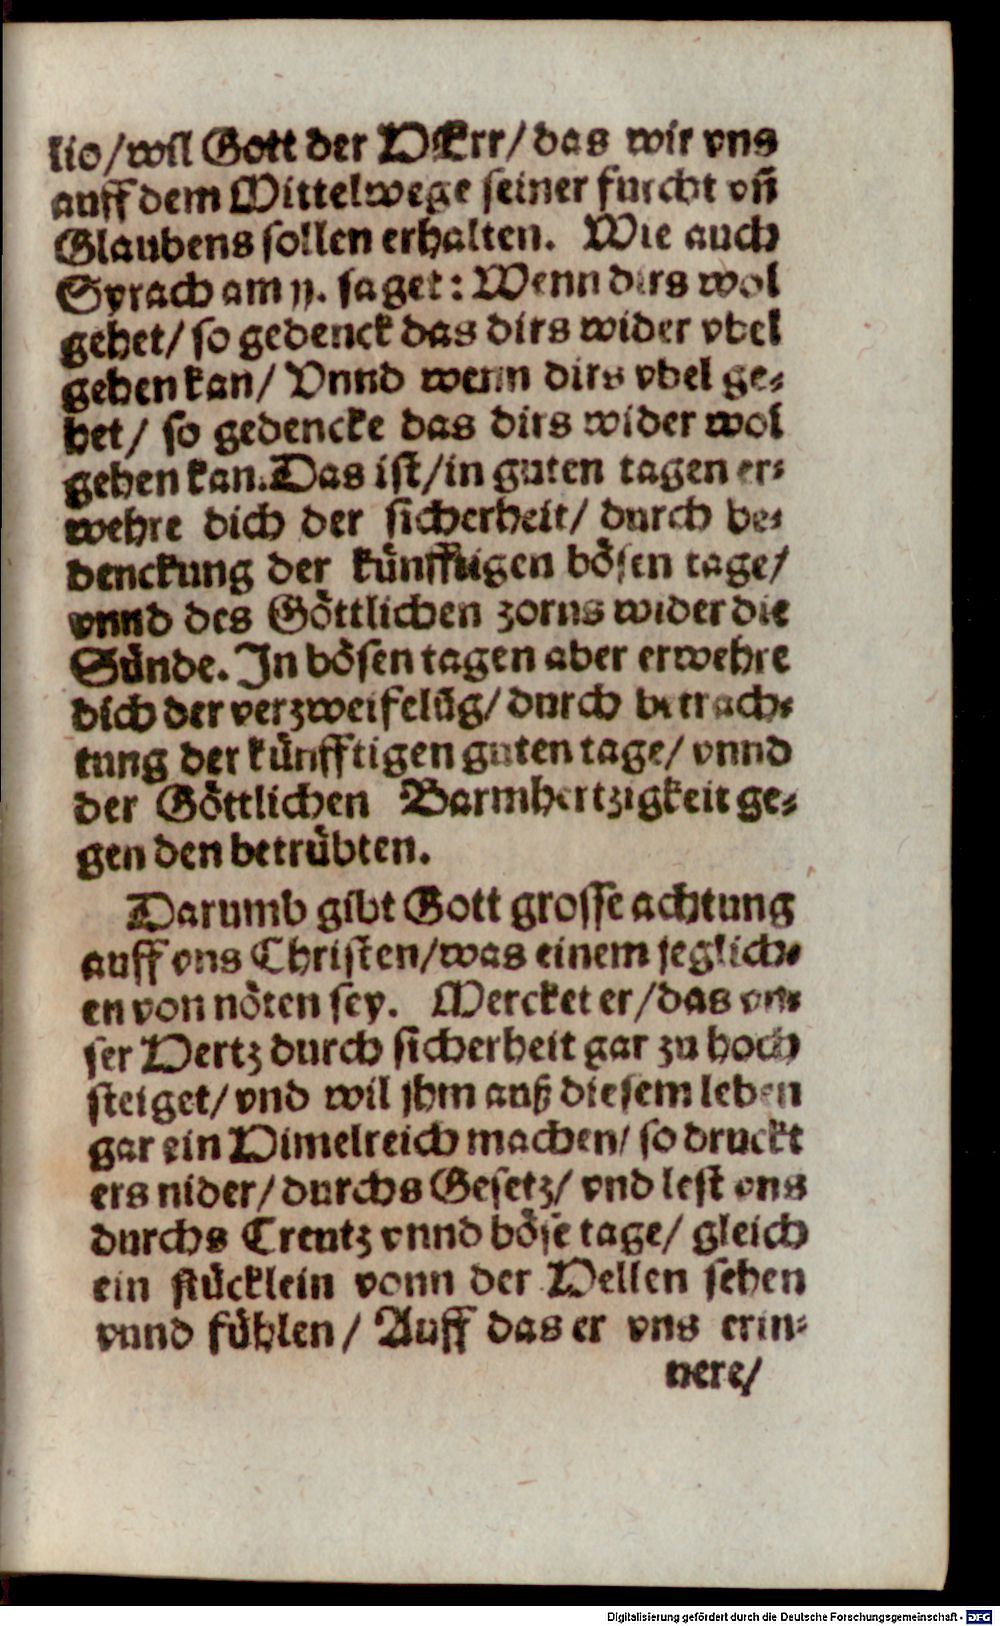 lio/wil Gott der HErr/das wir vns
auff dem Mittelwege seiner furcht vñ
Glaubens sollen erhalten. Wie auch
Syrach am 11. saget: Wenn dirs wol
gehet/ so gedenck das dirs wider vbel
gehen kan/ Vnnd wenn dirs vbel ge-
het/ so gedencke das dirs wider wol
gehen kan. Das ist/in guten tagen er-
wehre dich der sicherheit/ durch be-
denckung der künfftigen bösen tage/
vnnd des Göttlichen zorns wider die
Sünde. In bösen tagen aber erwehre
dich der verzweifelũg/ durch betrach-
tung der künfftigen guten tage/ vnnd
der Göttlichen Barmhertzigkeit ge-
gen den betrübten.
Darumb gibt Gott grosse achtung
auff vns Christen/was einem jeglich-
en von nöten sey. Mercket er/das vn-
ser Hertz durch sicherheit gar zu hoch
steiget/ vnd wil jhm auß diesem leben
gar ein Himelreich machen/ so druckt
ers nider/ durchs Gesetz/ vnd lest vns
durchs Creutz vnnd böse tage/ gleich
ein stücklein vonn der Hellen sehen
vnnd fühlen/ Auff das er vns erin-
nere/
Digitalisierung gefördert durch die Deutsche Forschungsgemeinschaft - DFG